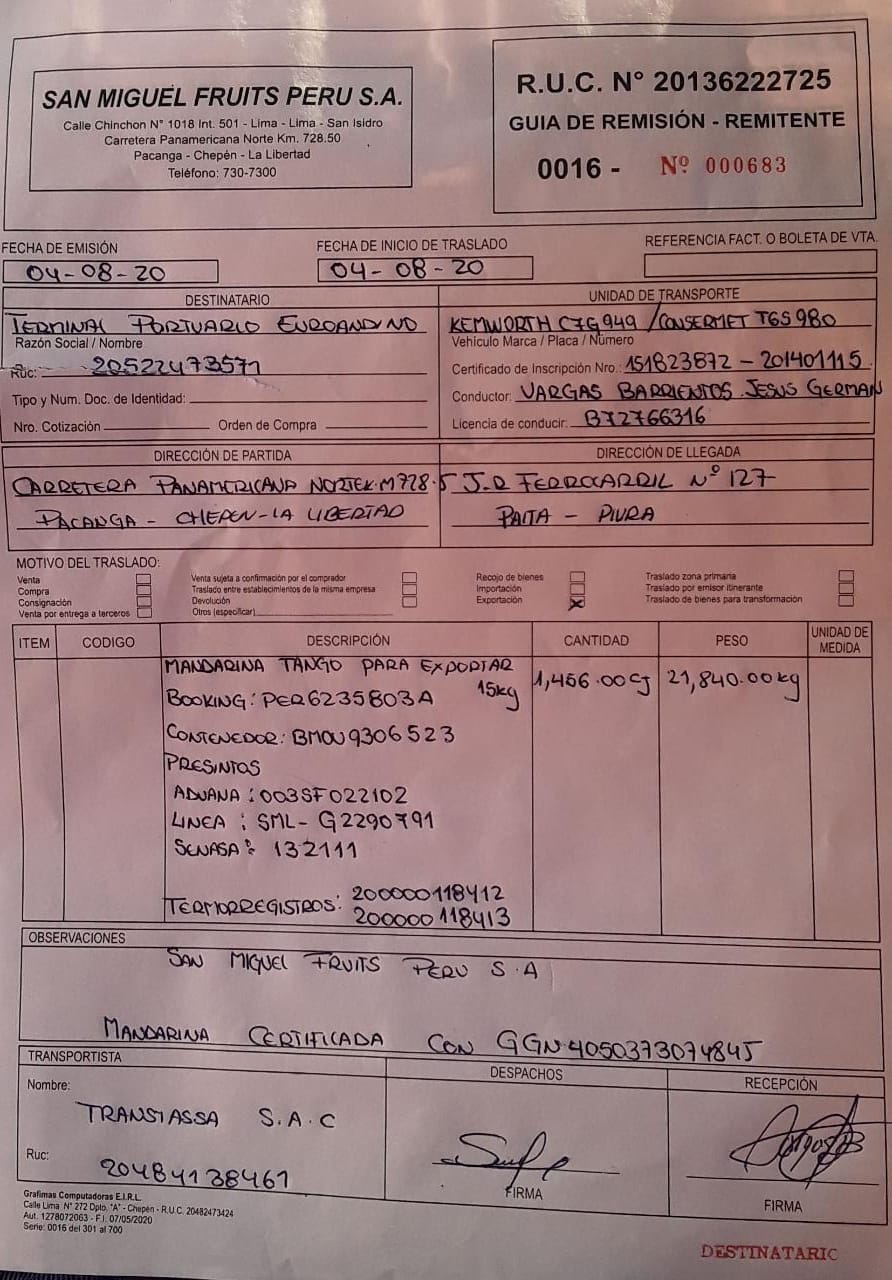 SAN MIGUEL FRUITS PERU S.A.
Calle Chinchon N° 1018 Int. 501 - Lima - Lima - San Isidro
Carretera Panamericana Norte Km. 728.50
Pacanga - Chepén - La Libertad
Teléfono: 730-7300
R.U.C. N° 20136222725
GUIA DE REMISIÓN - REMITENTE
0016 - Nº 000683
FECHA DE EMISIÓN
04-08-20
FECHA DE INICIO DE TRASLADO
04-08-20
REFERENCIA FACT. O BOLETA DE VTA.
DESTINATARIO
TERMINAL PORTUARIO EUROANDINO
Razón Social / Nombre
Ruc: 20522473571
Tipo y Num. Doc. de Identidad:
Nro. Cotización Orden de Compra
UNIDAD DE TRANSPORTE
KEMWORTH C7G949 / CONSERMET T6S980
Vehículo Marca / Placa / Número
Certificado de Inscripción Nro.: 151823872 - 201401115
Conductor: VARGAS BARRIENTOS JESUS GERMAN
Licencia de conducir: B72766316
DIRECCIÓN DE PARTIDA
CARRETERA PANAMERICANA NORTE K.M 728.5
PACANGA - CHEPEN - LA LIBERTAD
DIRECCIÓN DE LLEGADA
J.R FERROCARRIL Nº 127
PAITA - PIURA
MOTIVO DEL TRASLADO:
Venta
Compra
Consignación
Venta por entrega a terceros
Venta sujeta a confirmación por el comprador
Traslado entre establecimientos de la misma empresa
Devolución
Otros (especificar)
Recojo de bienes
Importación
Exportación X
Traslado zona primaria
Traslado por emisor itinerante
Traslado de bienes para transformación
ITEM CODIGO DESCRIPCIÓN CANTIDAD PESO UNIDAD DE MEDIDA
MANDARINA TANGO PARA EXPORTAR 15kg 1,456.00 CJ 21,840.00 kg
BOOKING: PER6235803A
CONTENEDOR: BMOU9306523
PRESINTOS
ADUANA: 003SF022102
LINEA: SML-G2290791
SENASA: 132111
TERMORREGISTROS: 200000118412
200000118413
OBSERVACIONES
SAN MIGUEL FRUITS PERU S.A
MANDARINA CERTIFICADA CON GGN 4050373074845
TRANSPORTISTA
Nombre:
TRANSTASSA S.A.C
Ruc:
20484138461
DESPACHOS
FIRMA
RECEPCIÓN
FIRMA
Grafimas Computadoras E.I.R.L.
Calle Lima N° 272 Dpto. "A" - Chepén - R.U.C. 20482473424
Aut. 1278072063 - F.I. 07/05/2020
Serie: 0016 del 301 al 700
DESTINATARIO